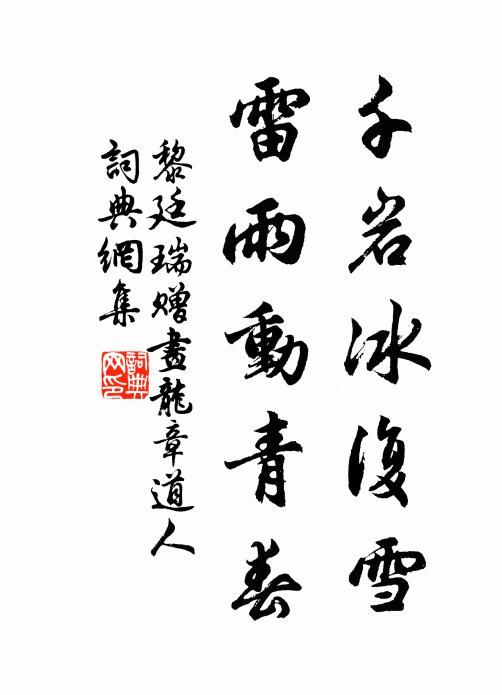 千岩冰復雪
雷雨動青春
黎廷瑞贈畫龍章道人
詞典網集
詞典网印